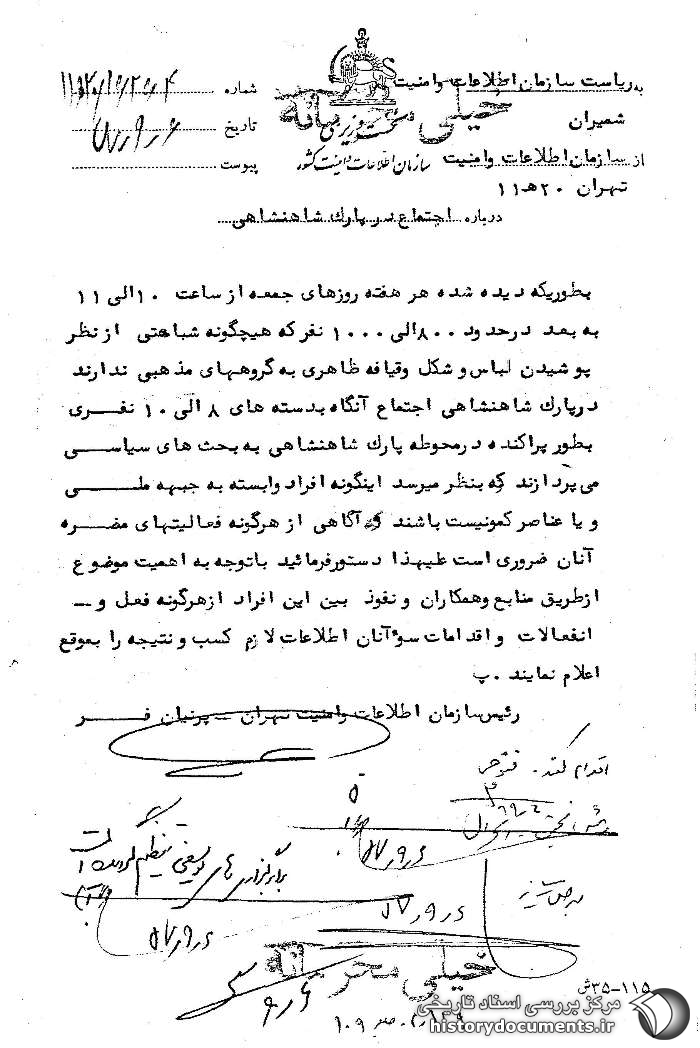 به ریاست سازمان اطلاعات وامنیت
شماره
شمیران
خیلی محرمانه
نخست وزیری
تاریخ ۶ر۹ر۵۷
از سازمان اطلاعات وامنیت
سازمان اطلاعات و امنیت کشور
پیوست
تهران ۲۰ هـ ۱۱
درباره اجتماع در پارك شاهنشاهی
بطوریکه دیده شده هر هفته روزهای جمعه از ساعت ۱۰ الی ۱۱
به بعد درحدود ۸۰۰ الی ۱۰۰۰ نفر که هیچگونه شباهتی از نظر
پوشیدن لباس و شکل وقیافه ظاهری به گروههای مذهبی ندارند
درپارك شاهنشاهی اجتماع آنگاه بدسته های ۸ الی ۱۰ نفری
بطور پراکنده درمحوطه پارك شاهنشاهی به بحث های سیاسی
می پردازند که بنظر میرسد اینگونه افراد وابسته به جبهه ملی
و یا عناصر کمونیست باشند و آگاهی از هرگونه فعالیتهای مضره
آنان ضروری است علیهذا دستورفرمائید باتوجه به اهمیت موضوع
ازطریق منابع وهمکاران و نفوذ بین این افراد ازهرگونه فعل و ـ
انفعالات و اقدامات سوٴ آنان اطلاعات لازم کسب و نتیجه را بموقع
اعلام نمایند . پ
رئیس سازمان اطلاعات وامنیت تهران ـ پرنیان فر
اقدام کنند .
۶ر۹ر۵۷
۶ر۹ر۵۷
۶ر۹ر۵۷
خیلی محرمانه
۱۱۵-۳۵ش
مرکز بررسی اسناد تاریخی
historydocuments.ir